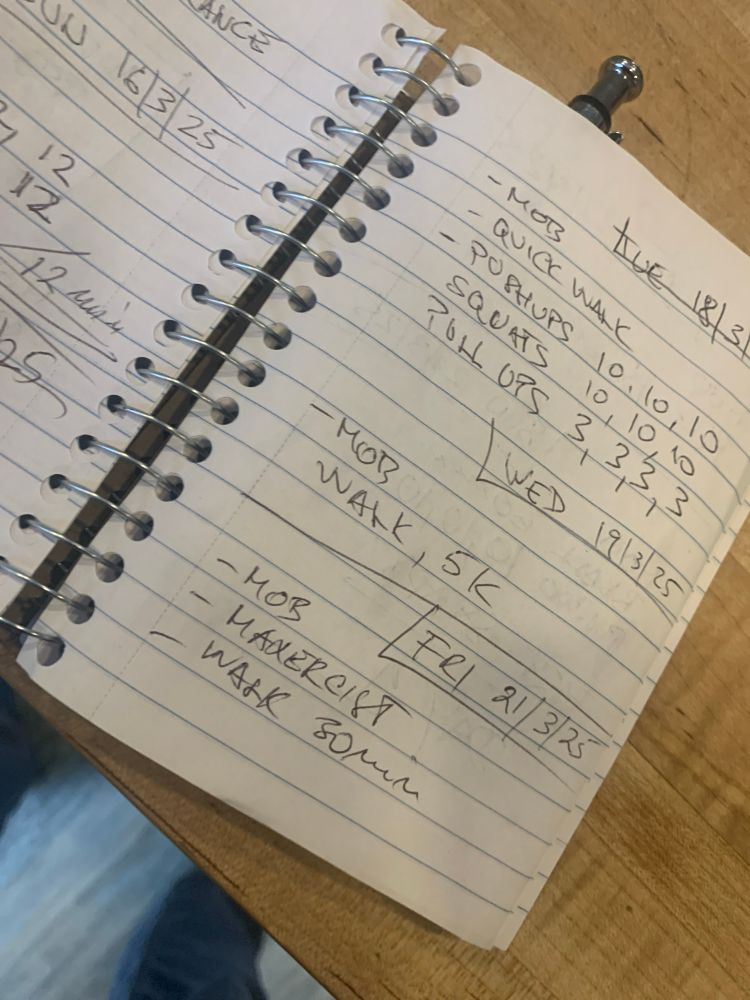 ANCE
SUN 16/3/25
12
12
12 min
25
TUE 18/3/
- MOB
- QUICK WALK
- PUSHUPS 10, 10, 10
SQUATS 10, 10, 10
PULL UPS 3, 3, 3, 3
WED 19/3/25
- MOB
WALK, 5K
FRI 21/3/25
- MOB
- MAXERCIST
- WALK 30min